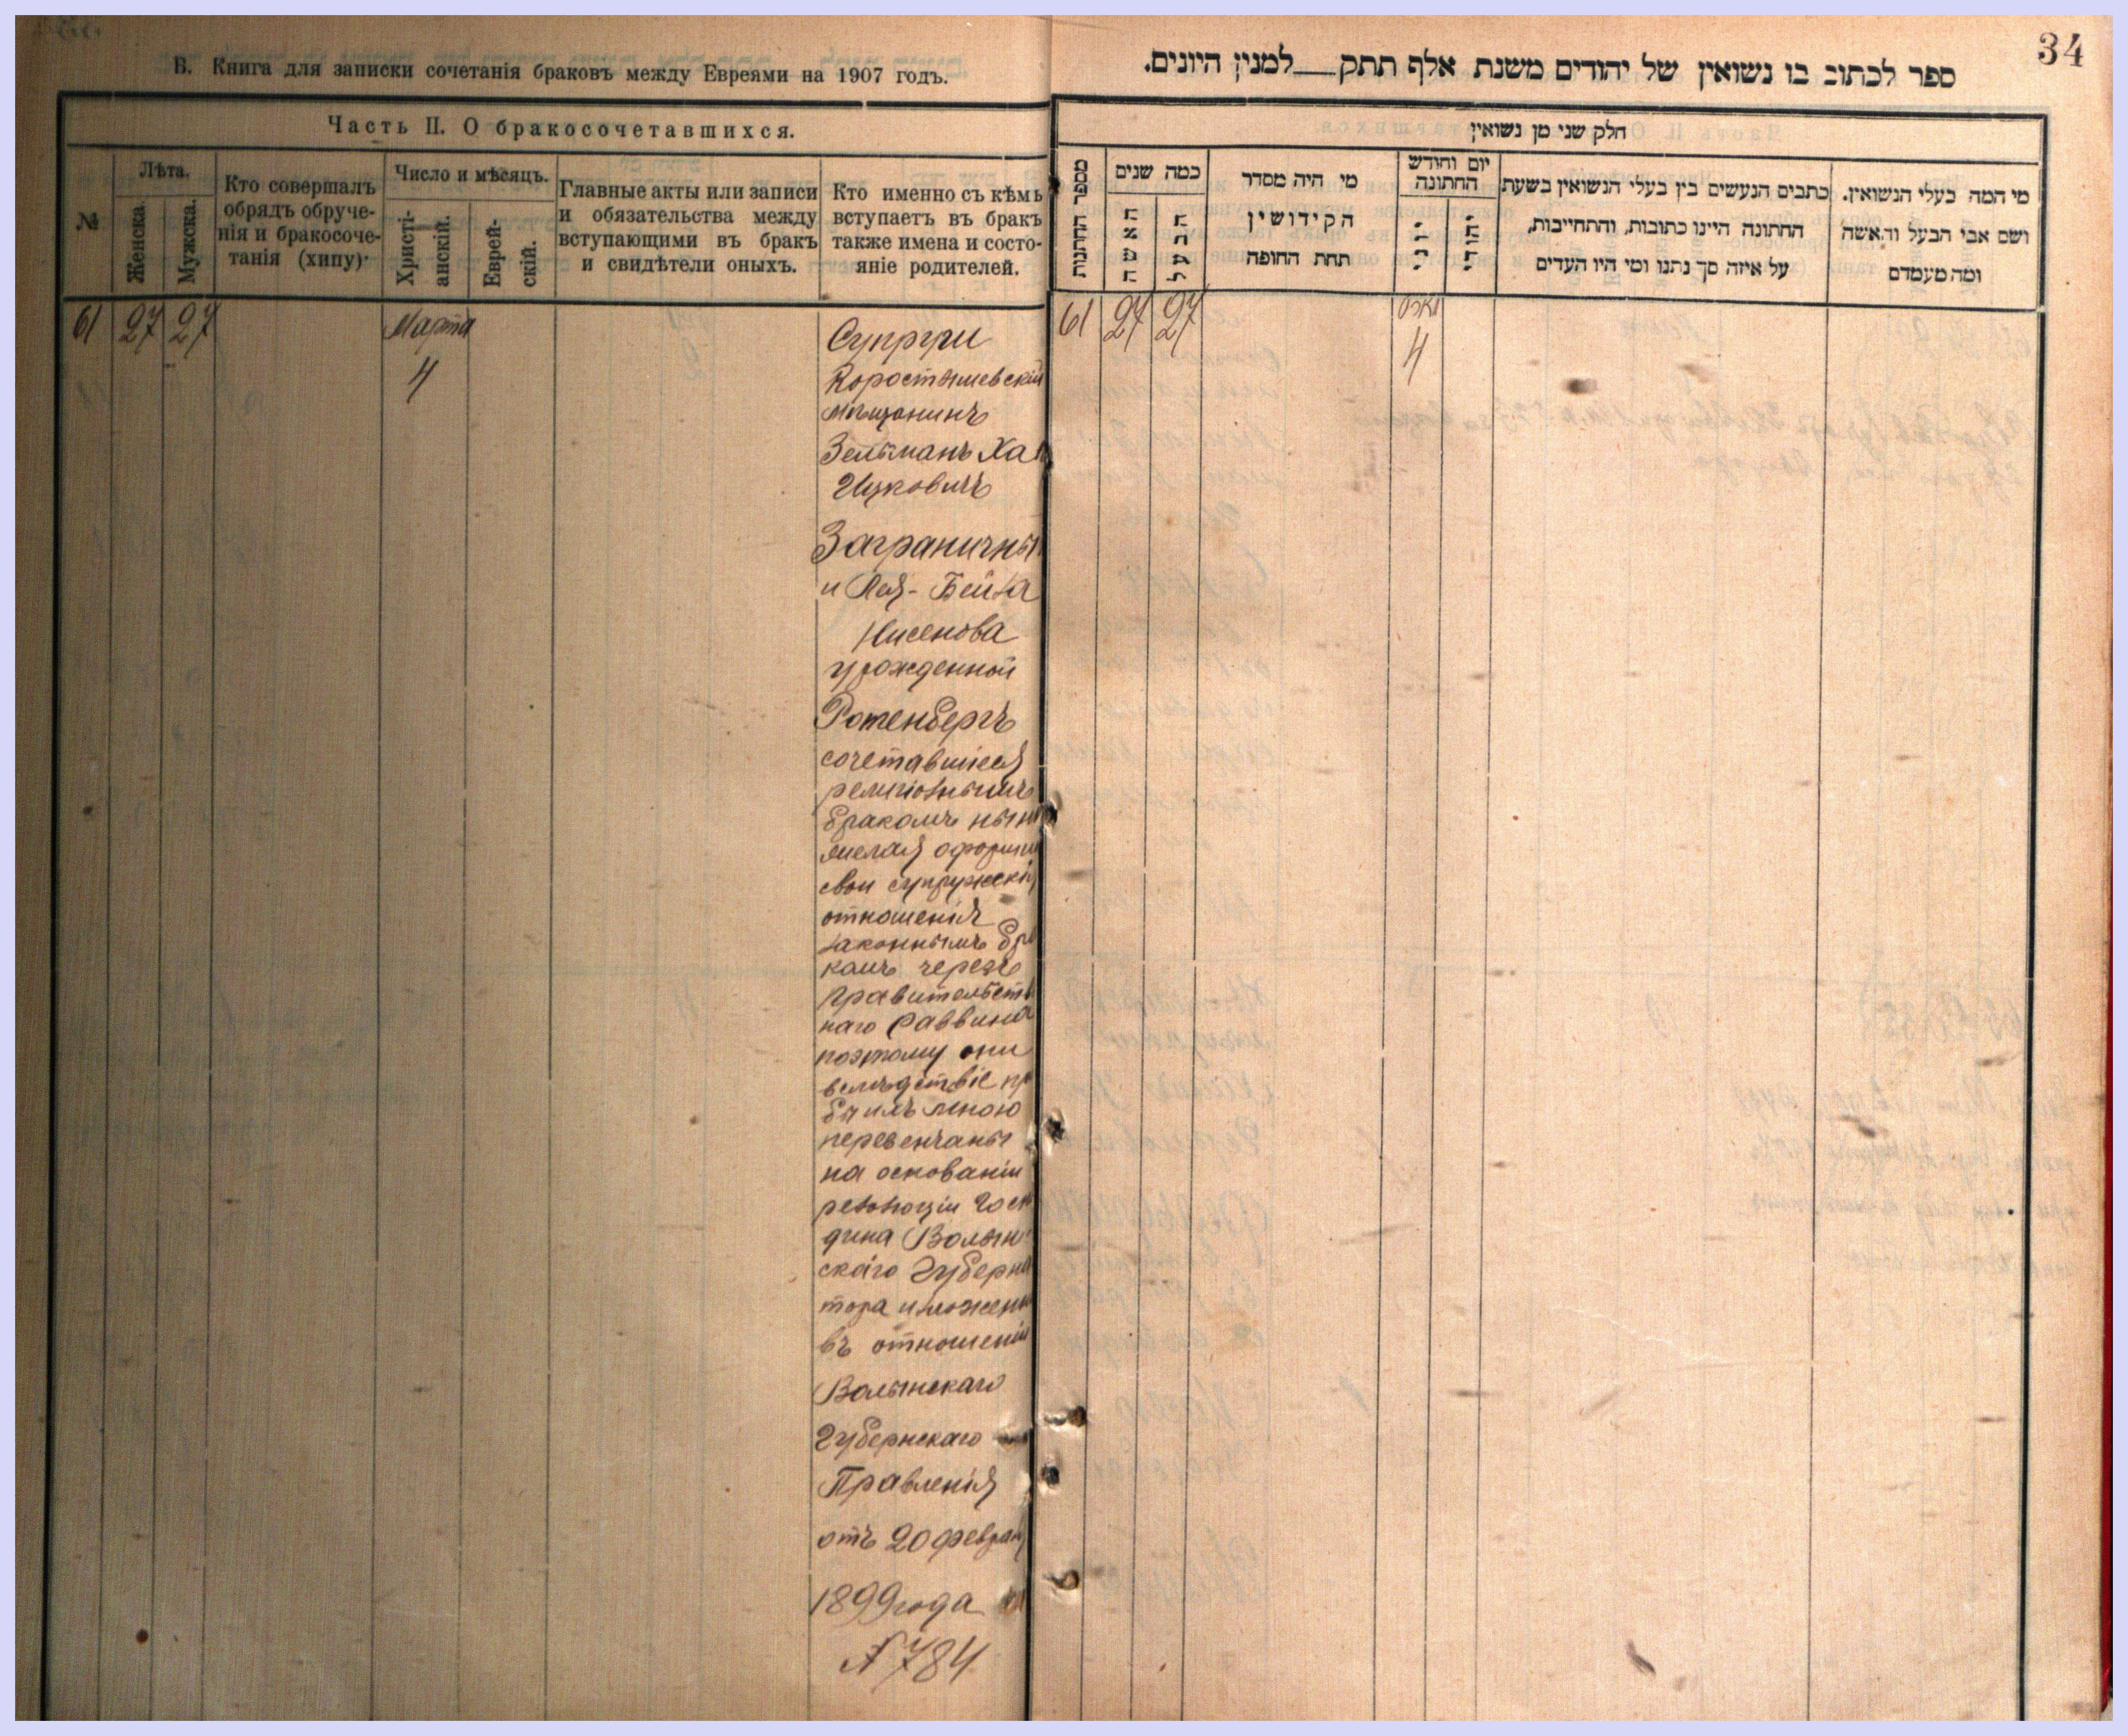 Б. Книга для записки сочетанія браковъ между Евреями на 1907 годъ.
Часть II. О бракосочетавшихся.
№
Лѣта.
Женска.
Мужска.
Кто совершалъ
обрядъ обруче-
нія и бракосоче-
танія (хипу)·
Число и мѣсяцъ.
Христі-
анскій.
Еврей-
скій.
Главные акты или записи
и обязательства между
вступающими въ бракъ
и свидѣтели оныхъ.
Кто именно съ кѣмъ
вступаетъ въ бракъ
также имена и состо-
яніе родителей.
61 27 27 Марта
4
Супруги
Коростышевскій
мѣщанинъ
Зельманъ Ха
Ицковичъ
Заграничны
и Лея-Бейла
Нисенова
урожденной
Ротенбергъ
сочетавшіеся
религіознымъ
бракомъ нын
желая оформи
свои супружескія
отношенія
законнымъ бра
комъ черезъ
правительств
наго раввина
поэтому они
вслѣдствіе пр
бы илъ мною
перевенчаны
на основаніи
резолюціи Госп
дина Волын
скаго Губерна
тора изложен
въ отношеніи
Волынскаго
Губернскаго
Правленія
отъ 20 февраля
1899 года
№ 784
34
ספר לכתוב בו נשואין של יהודים משנת אלף תתק__למנין היונים.
חלק שני מן נשואין
מספר החתונות
כמה שנים
האשה
הבעל
מי היה מסדר
הקידושין
תחת החופה
יום וחודש
החתונה
יוני
יהודי
כתבים הנעשים בין בעלי הנשואין בשעת
החתונה היינו כתובות, והתחייבות,
על איזה סך נתנו ומי היו העדים
מי המה בעלי הנשואין.
ושם אבי הבעל והאשה
ומה מעמדם
61 27 27
4